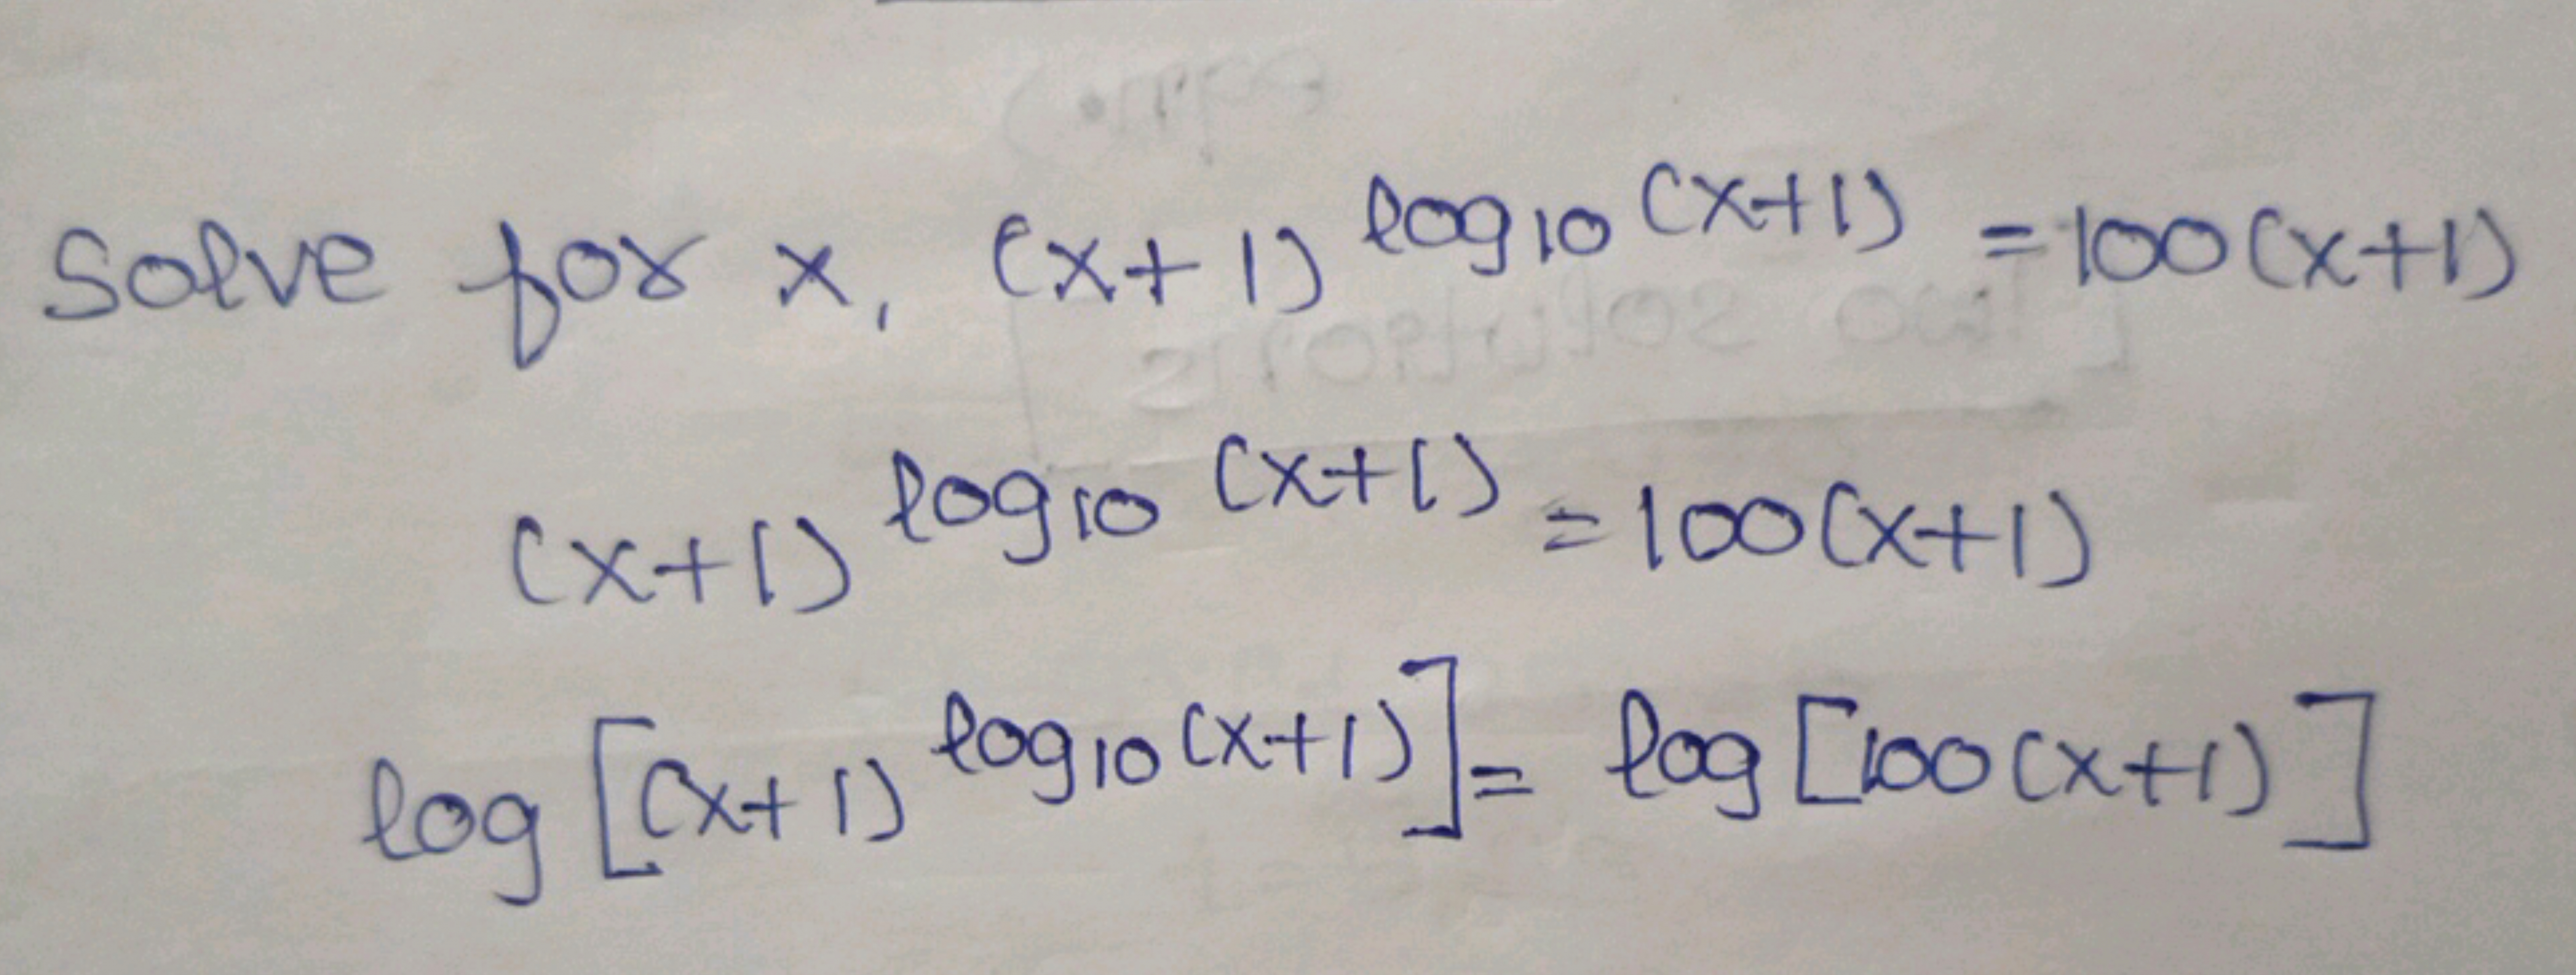 Solve for x, (x+1)^log₁₀(x+1) = 100(x+1)
(x+1)^log₁₀(x+1) = 100(x+1)
log[(x+1)^log₁₀(x+1)] = log[100(x+1)]